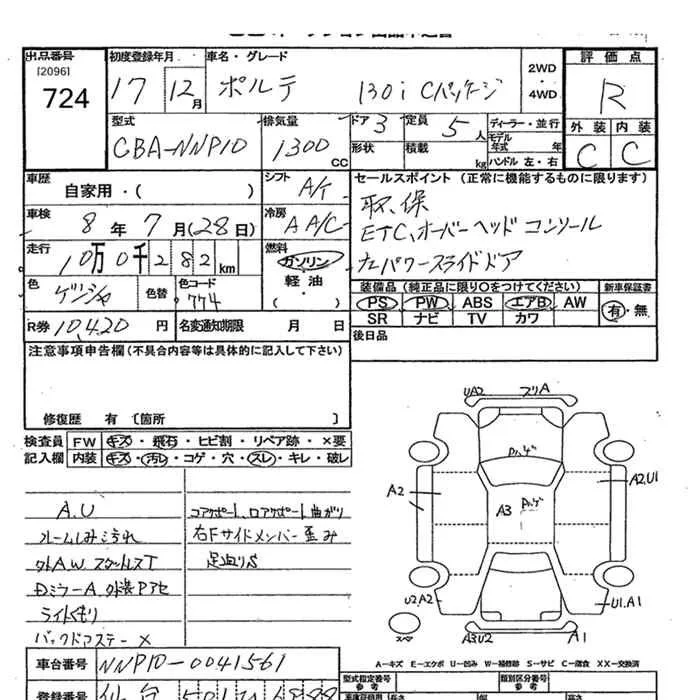 出品番号
[2096]
724
初度登録年月
17 12月
車名・グレード
ポルテ 130i Cパッケージ
2WD
・
4WD
評価点
R
外装 内装
C C
型式
CBA-NNP10
排気量
1300
CC
ドア 3
定員 5人
形状
積載
kg
ディーラー・並行
モデル
年式 年
ハンドル 左・右
車歴
自家用・( )
シフト A/T
セールスポイント (正常に機能するものに限ります)
取、保
ETC、オーバーヘッドコンソール
左パワースライドドア
車検
8年 7月(28日)
冷房 AA/C
走行
10万0千282km
燃料
ガソリン
・
軽油
( )
色
色替
色コード
774
装備品(純正品に限り○をつけてください)
新車保証書
PS PW ABS エアB AW
SR ナビ TV カワ
有・無
R券 10,420 円
名変通知期限 月 日
後日品
注意事項申告欄(不具合内容等は具体的に記入して下さい)
修復歴 有 〔箇所 〕
検査員
記入欄
FW キズ・飛石・ヒビ割・リペア跡・×要
内装 キズ・汚レ・コゲ・穴・スレ・キレ・破レ
A.U
ルームしみ汚れ
外A.W.スタットレスT
ライトくもり
バックドアステー ×
コアサポート、ロアサポート曲がり
右Fサイドメンバー歪み
UA2
A2
A3
A2,U1
U2,A2
U1.A1
A3U2
A1
A-キズ E-エクボ U-凹み W-補修跡 S-サビ C-腐食 XX-交換済
車台番号
NNP10-0041561
登録番号
仙台 501
型式指定番号
参考
類別区分番号
参考